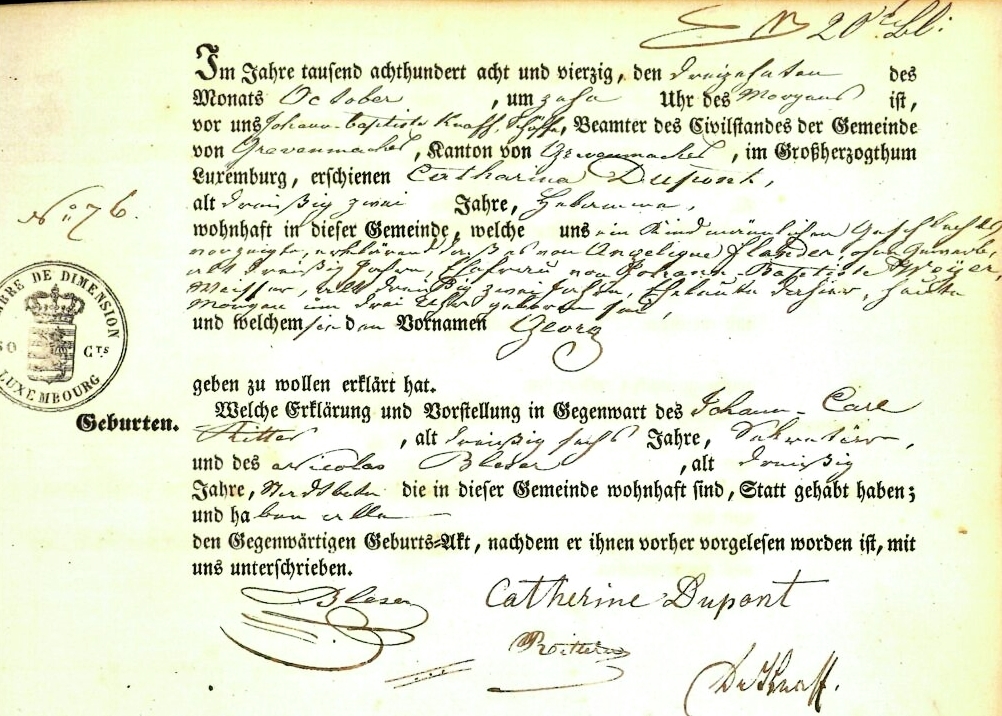 20
Im Jahre tausend achthundert acht und vierzig, den dreizehnten des
Monats October, um zehn Uhr des Morgens ist,
vor uns Johann-baptiste Knaff, Schöffe, Beamter des Civilstandes der Gemeinde
von Grevenmacher, Kanton von Grevenmacher, im Großherzogthum
Luxemburg, erschienen Catharina Dupont,
alt dreißig zwei Jahre, Hebamme,
No: 76.
wohnhaft in dieser Gemeinde, welche uns ein Kind männlichen Geschlechtes
vorzeigte, erklärend daß es von Angelique Flander, ohne Gewerbe,
alt dreißig Jahre, Ehefrau von Johann-Baptiste
alt dreißig zwei Jahre, Eheleute dahier, heute
Morgen um drei Uhr geboren sei,
und welchem sie den Vornamen Georg
TIMBRE DE DIMENSION
50 CTS
LUXEMBOURG
geben zu wollen erklärt hat.
Geburten.
Welche Erklärung und Vorstellung in Gegenwart des Johann-Carl
Ritter, alt dreißig sechs Jahre, Sekretär,
und des Nicolas Bleser, alt dreißig
Jahre, Stadtbote die in dieser Gemeinde wohnhaft sind, Statt gehabt haben;
und haben alle
den Gegenwärtigen Geburts-Akt, nachdem er ihnen vorher vorgelesen worden ist, mit
uns unterschrieben.
Bleser
Catherine Dupont
Ritter
Knaff.